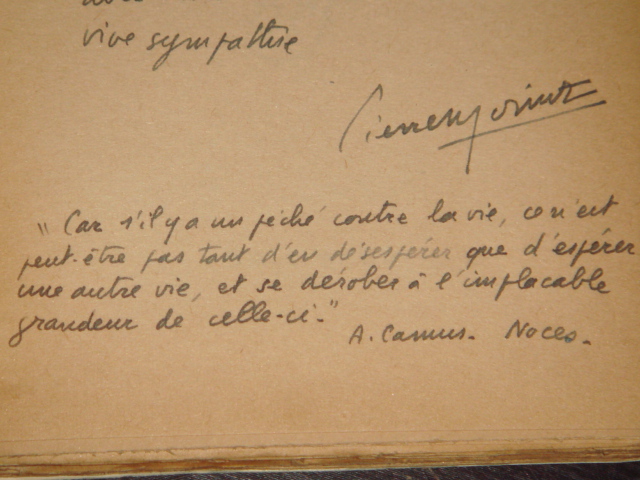 vive sympathie
Pierre Moinot
"Car s'il y a un péché contre la vie, ce n'est
peut-être pas tant d'en désespérer que d'espérer
une autre vie, et se dérober à l'implacable
grandeur de celle-ci."
A. Camus. Noces.